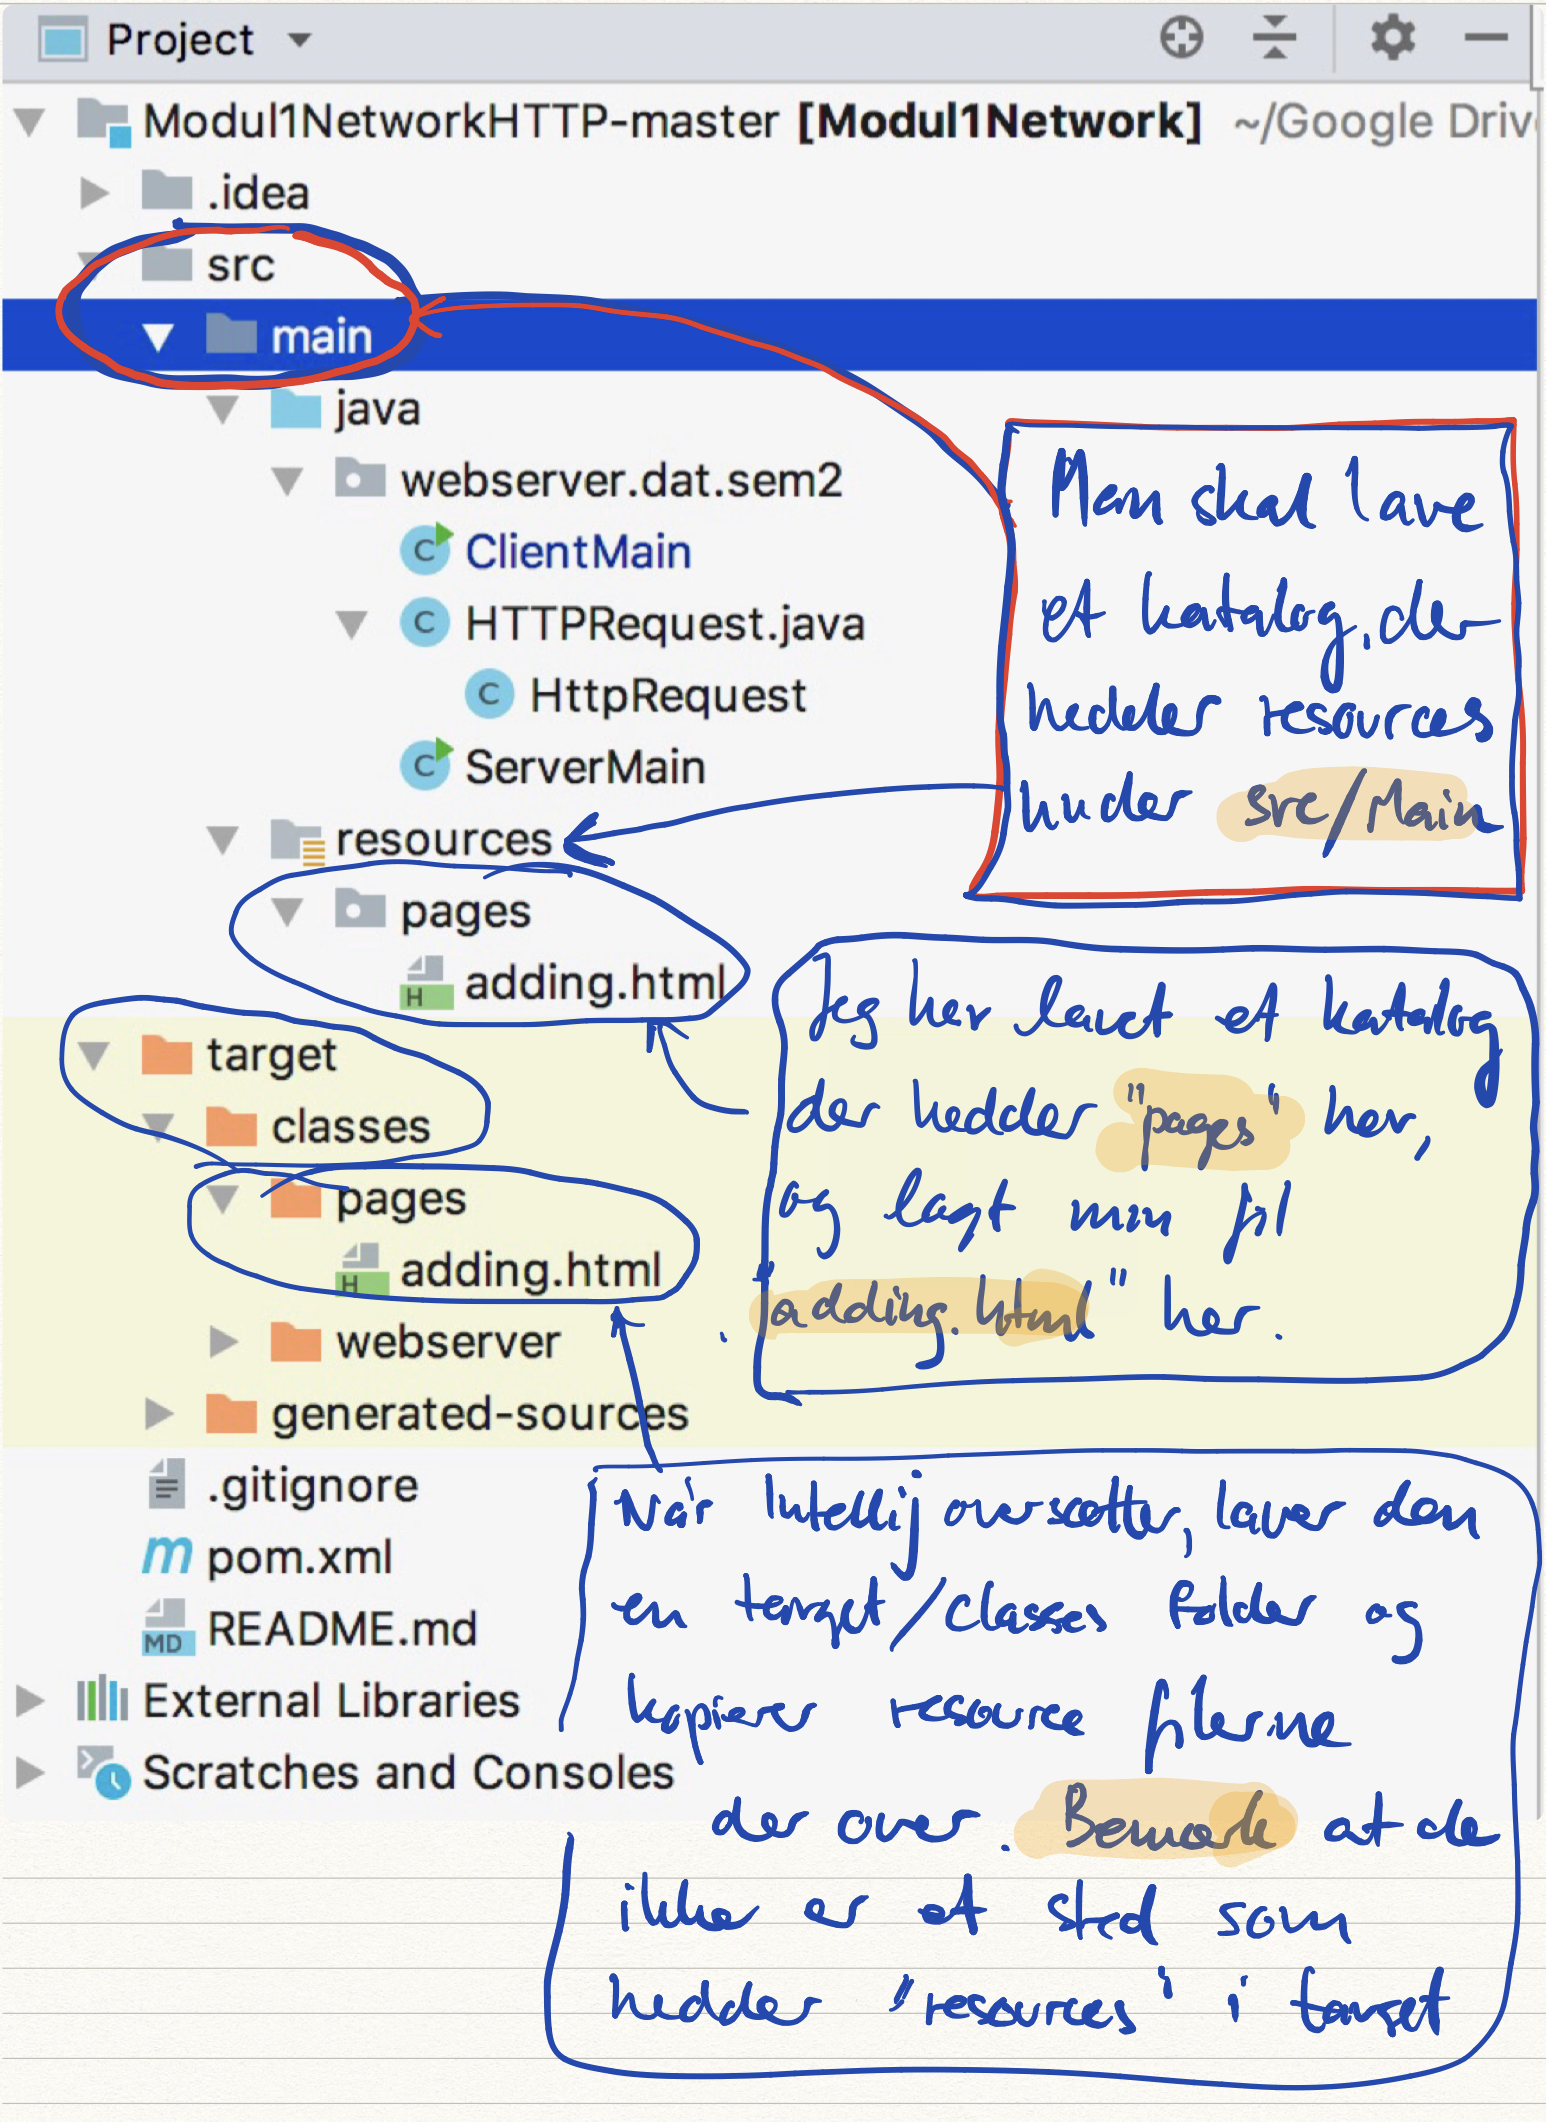 Project
Modul1NetworkHTTP-master [Modul1Network] ~/Google Driv
.idea
src
main
java
webserver.dat.sem2
ClientMain
HTTPRequest.java
HttpRequest
ServerMain
resources
pages
adding.html
target
classes
pages
adding.html
webserver
generated-sources
.gitignore
pom.xml
README.md
External Libraries
Scratches and Consoles
Man skal lave
et katalog, der
hedder resources
under src/Main
Jeg har lavet et katalog
der hedder "pages" her,
og lagt min fil
"adding.html" her.
Når Intellij oversætter, laver den
en target/classes folder og
kopierer resource filerne
der over. Bemærk at de
ikke er et sted som
hedder "resources" i target